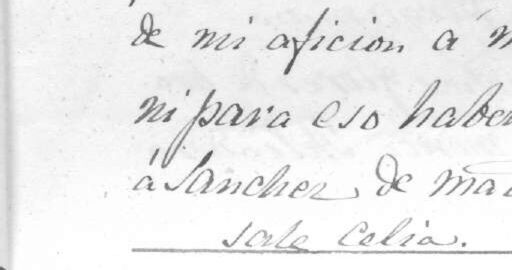 de mi aficion á
ni para eso haber
á Sanchez de
sale Celia.